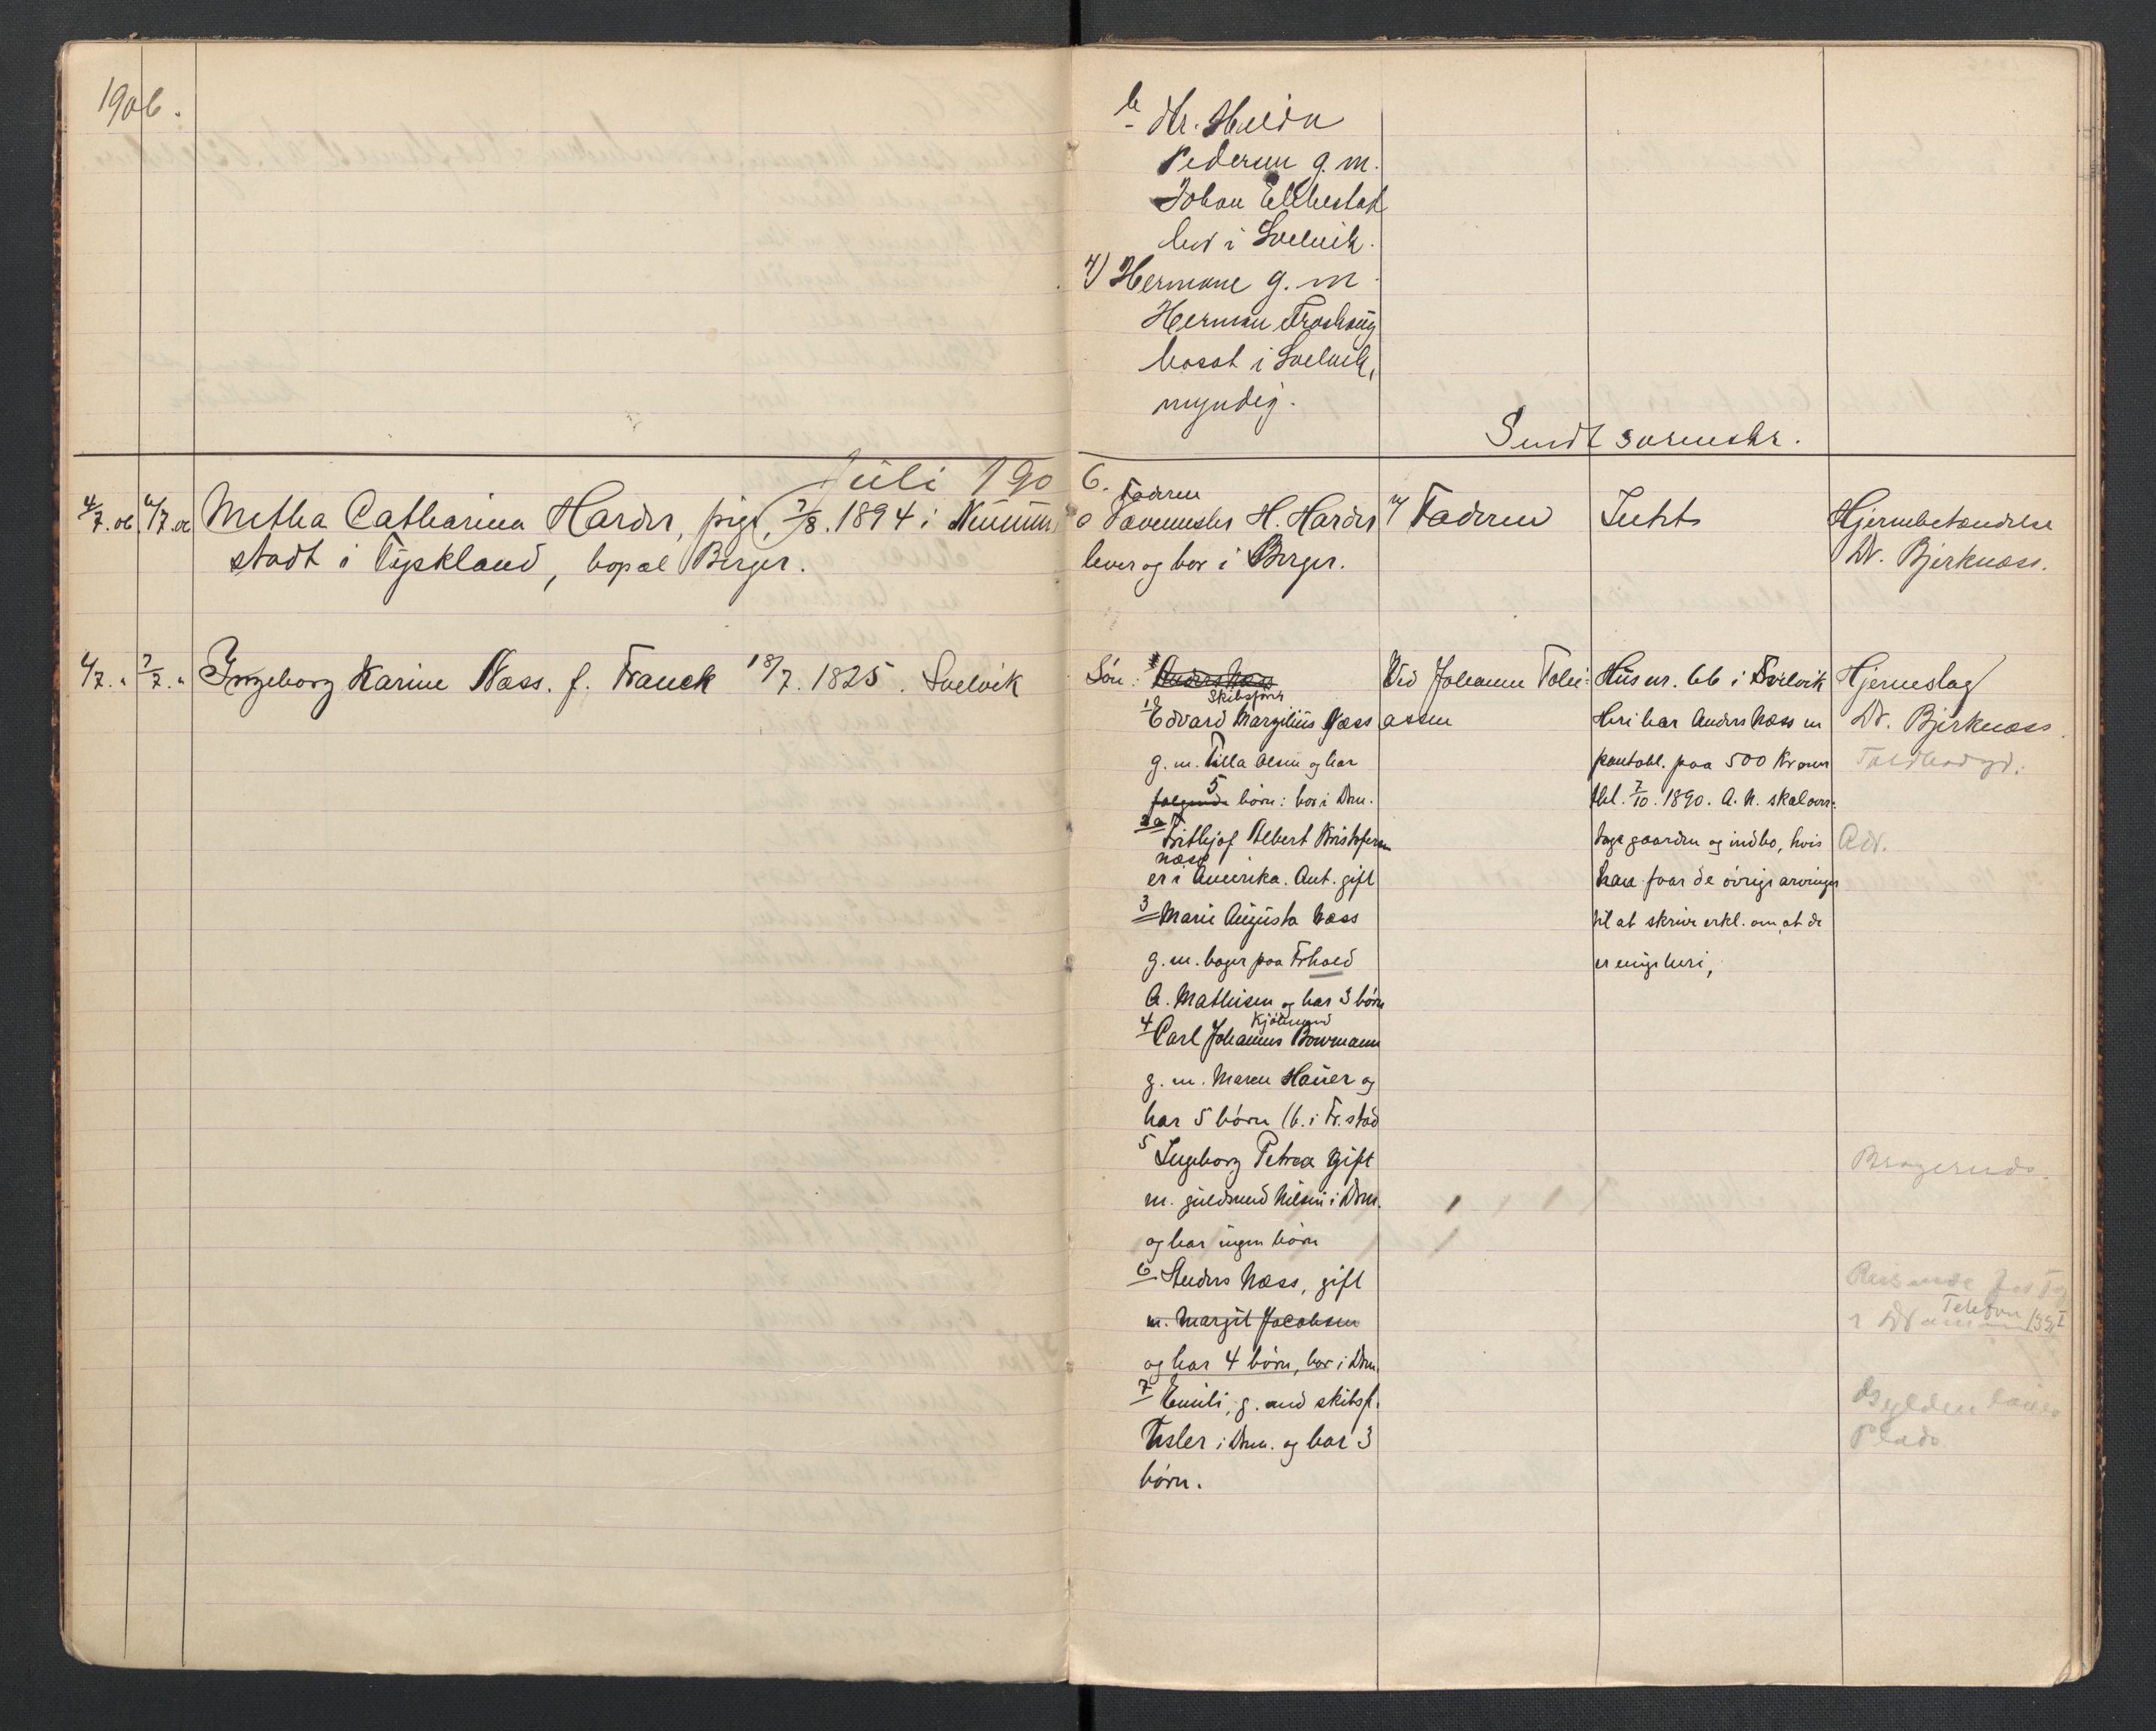 1906.
b
Hr. Hulda
Pedersen g. m.
Johan Ellbestad
bor i Svelvik.
4) Hermane g. m.
Herman Froshaug
bosat i Svelvik,
myndig.
Sendt sorenskr.
Juli 1906.
4/7. 06. 6/7. 06 Metha Catharina Harder, pige, 7/8. 1894 i Neumün
stadt i Tyskland, bopæl Berger.
Faderen
Vævemester H. Harder
lever og bor i Berger.
Faderen
Intet
Hjernebetændelse
Dr. Bjerknæss.
4/7. " 7/7. " Ingeborg Karine Næss. f. Franck 18/7. 1825. Svelvik
Søn: Anders Næss
Skibsfører
1. Edvard Margilius Næss
g. m. Tilla Olsen og har
følgende 5 børn: bor i Drm.
2. Frithjof Albert Kristofersen
Næss
er i Amerika. Ant. gift
3 Marie Augusta Næss
g. m. bager paa Frhald
A. Mathisen og har 3 børn
4 Carl Johannes Bowmann
Kjøbmand
g. m. Maren Hauer og
har 5 børn (b. i Fr.stad
5 Ingeborg Petrea gift
m. guldsmed Nilsen i Drm.
og har ingen børn
6. Anders Næss, gift
m. Margit Jacobsen
og har 4 børn, bor i Drm.
7 Emili, g. med skibsf.
Tesler i Drm. og har 3
børn.
Ved Johanne Tobi-
assen
Hus nr. 66 i Svelvik
Heri har Anders Næss en
pantobl. paa 500 Kroner
tbl. 7/10. 1890. A. N. skal over-
tage gaarden og indbo, hvis
han faar de øvrige arvinger
til at skrive erkl. om, at de
er enige heri,
Hjerneslag
Dr. Bjerknæss.
Toldbodgd.
Adr.
Bragernes.
Reisende
Telefon
Gyldenløves
Plads